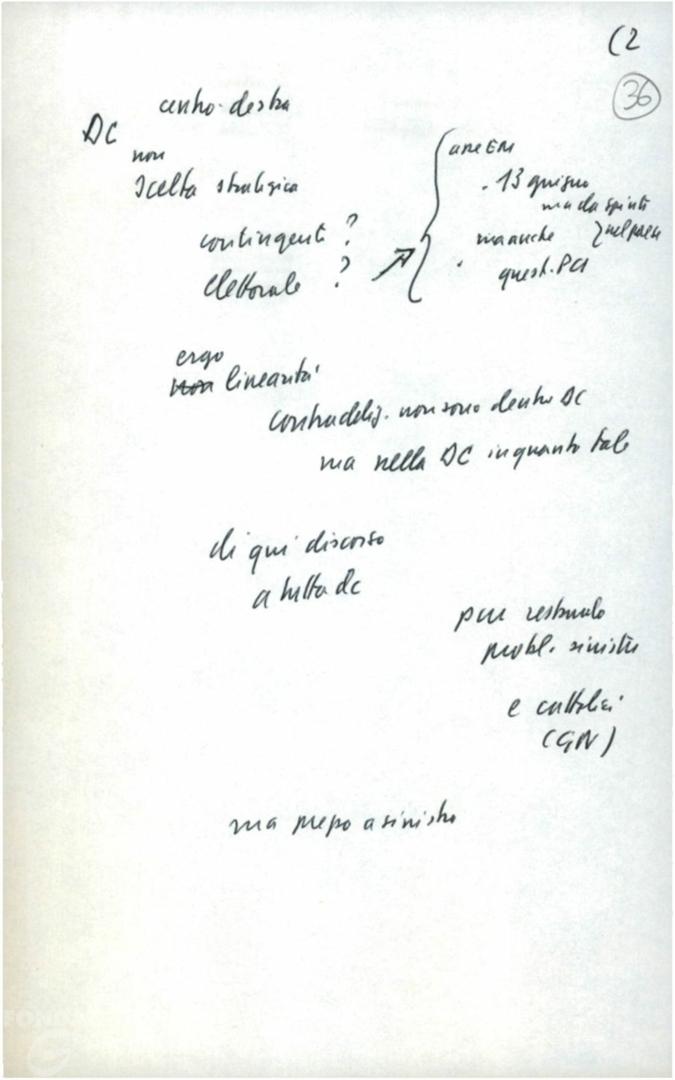 (2
36
centro-destra
DC
non
scelta strategica
contingente ?
elettorale ?
. 13 giugno
ma da spinte
ma anche } nel paese
. quest. PCI
ergo
non linearità
contraddiz. non sono dentro DC
ma nella DC in quanto tale
di qui discorso
a tutta dc
pur restando
probl. sinistre
e cattolici
(GN)
ma a sinistra
FOND